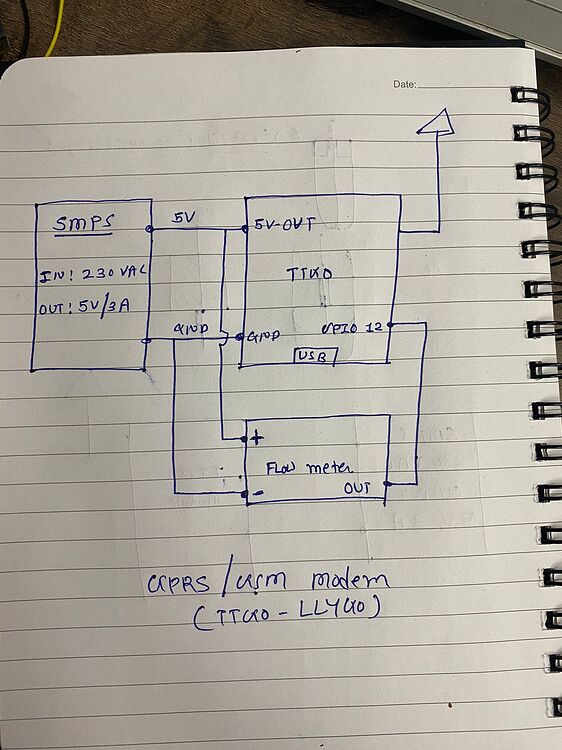 Date:
SMPS
IN: 230 VAC
OUT: 5V/3A
5V
GND
5V-OUT
TTGO
GND
GPIO 12
USB
+
Flow meter
-
OUT
GPRS/GSM modem
(TTGO-LLYGO)